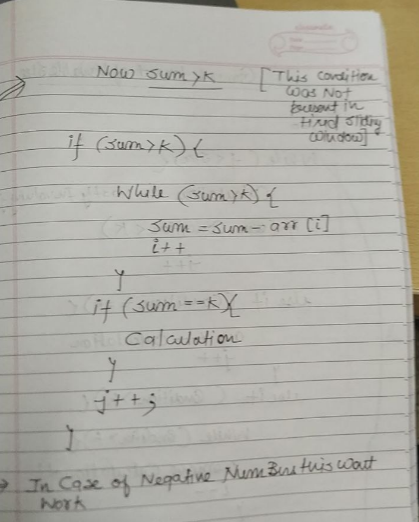 Now sum>k [This condition
was Not
present in
fixed sliding
window]
if (sum>k) {
While (sum>k) {
sum = sum - arr [i]
i++
}
if (sum == k){
Calculation
}
j++;
}
→ In Case of Negative Numbers this wont
work